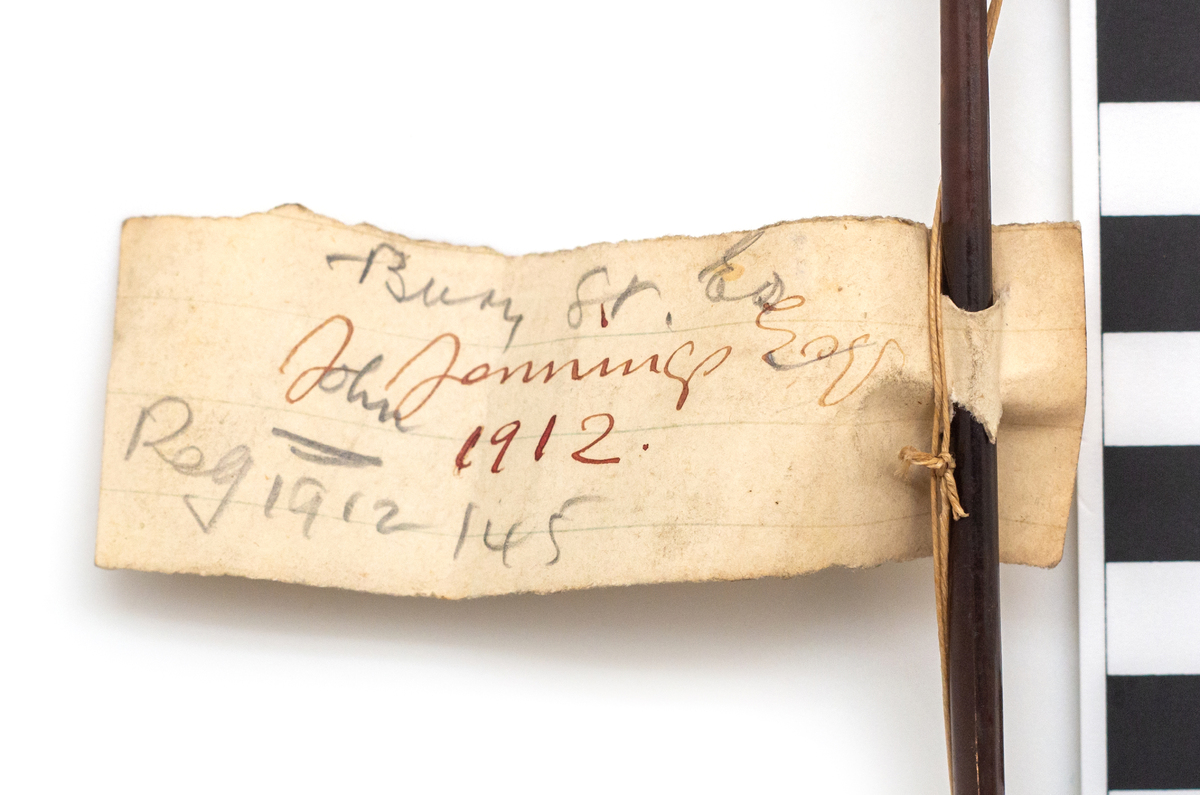 Bury St. Ed
John Jennings Esq
1912.
Reg 1912 145